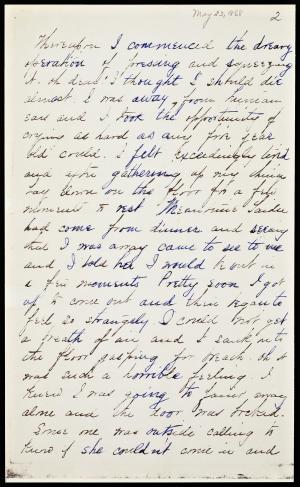 May 23, 1868
2
Thereupon I commenced the dreary
operation of pressing and squeezing
it. Oh dear! I thought I should die
almost. I was away from human
ears and I took the opportunity of
crying as hard as any five year
old could. I felt exceedingly tired
and upon gathering up my things
lay down on the floor for a few
moments to rest. Meantime
had come from dinner and seeing
that I was away came to see to me
and I told her I would be out in
a few moments. Pretty soon I got
up to come out and then began to
feel so strangely I could not get
a breath of air, and I sank into
the floor gasping for breath. Oh it
was such a horrible feeling. I
knew I was going to faint away
alone and the door was locked.
Some one was outside calling to
know if she couldn't come in and